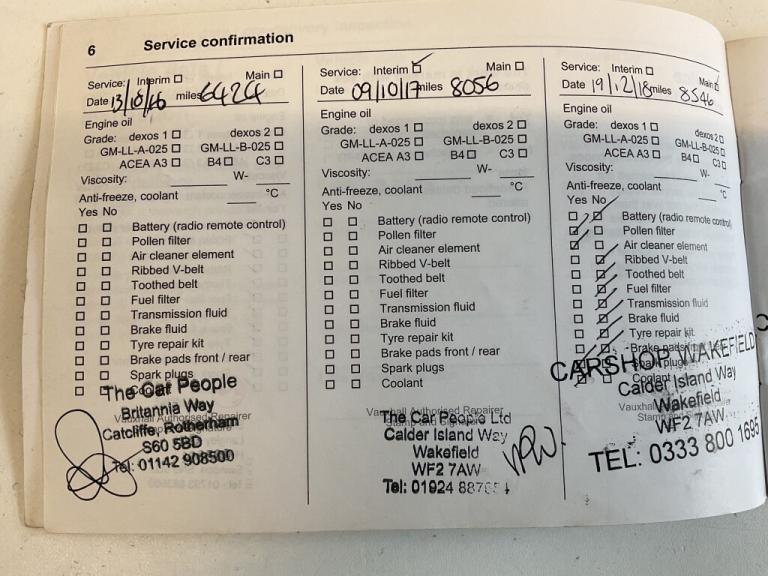 6 Service confirmation
Service: Interim Main
Date 13/10/16 miles 6424
Engine oil
Grade: dexos 1 dexos 2
GM-LL-A-025 GM-LL-B-025
ACEA A3 B4 C3
Viscosity: W-
Anti-freeze, coolant °C
Yes No
Battery (radio remote control)
Pollen filter
Air cleaner element
Ribbed V-belt
Toothed belt
Fuel filter
Transmission fluid
Brake fluid
Tyre repair kit
Brake pads front / rear
Spark plugs
Coolant
The Car People
Britannia Way
Vauxhall Authorised Repairer
Catcliffe, Rotherham
S60 5BD
Tel: 01142 908500
Service: Interim Main
Date 09/10/17 miles 8056
Engine oil
Grade: dexos 1 dexos 2
GM-LL-A-025 GM-LL-B-025
ACEA A3 B4 C3
Viscosity: W-
Anti-freeze, coolant °C
Yes No
Battery (radio remote control)
Pollen filter
Air cleaner element
Ribbed V-belt
Toothed belt
Fuel filter
Transmission fluid
Brake fluid
Tyre repair kit
Brake pads front / rear
Spark plugs
Coolant
Vauxhall Authorised Repairer
The Car People Ltd
Stamp and Signature
Calder Island Way
Wakefield
WF2 7AW
Tel: 01924
Service: Interim Main
Date 19/12/18 miles 8546
Engine oil
Grade: dexos 1 dexos 2
GM-LL-A-025 GM-LL-B-025
ACEA A3 B4 C3
Viscosity: W-
Anti-freeze, coolant °C
Yes No
Battery (radio remote control)
Pollen filter
Air cleaner element
Ribbed V-belt
Toothed belt
Fuel filter
Transmission fluid
Brake fluid
Tyre repair kit
Brake pads
Spark plugs
Coolant
CARSHOP WAKEFIELD
Calder Island Way
Wakefield
Vauxhall
Stamp and
WF2 7AW
TEL: 0333 800 1695